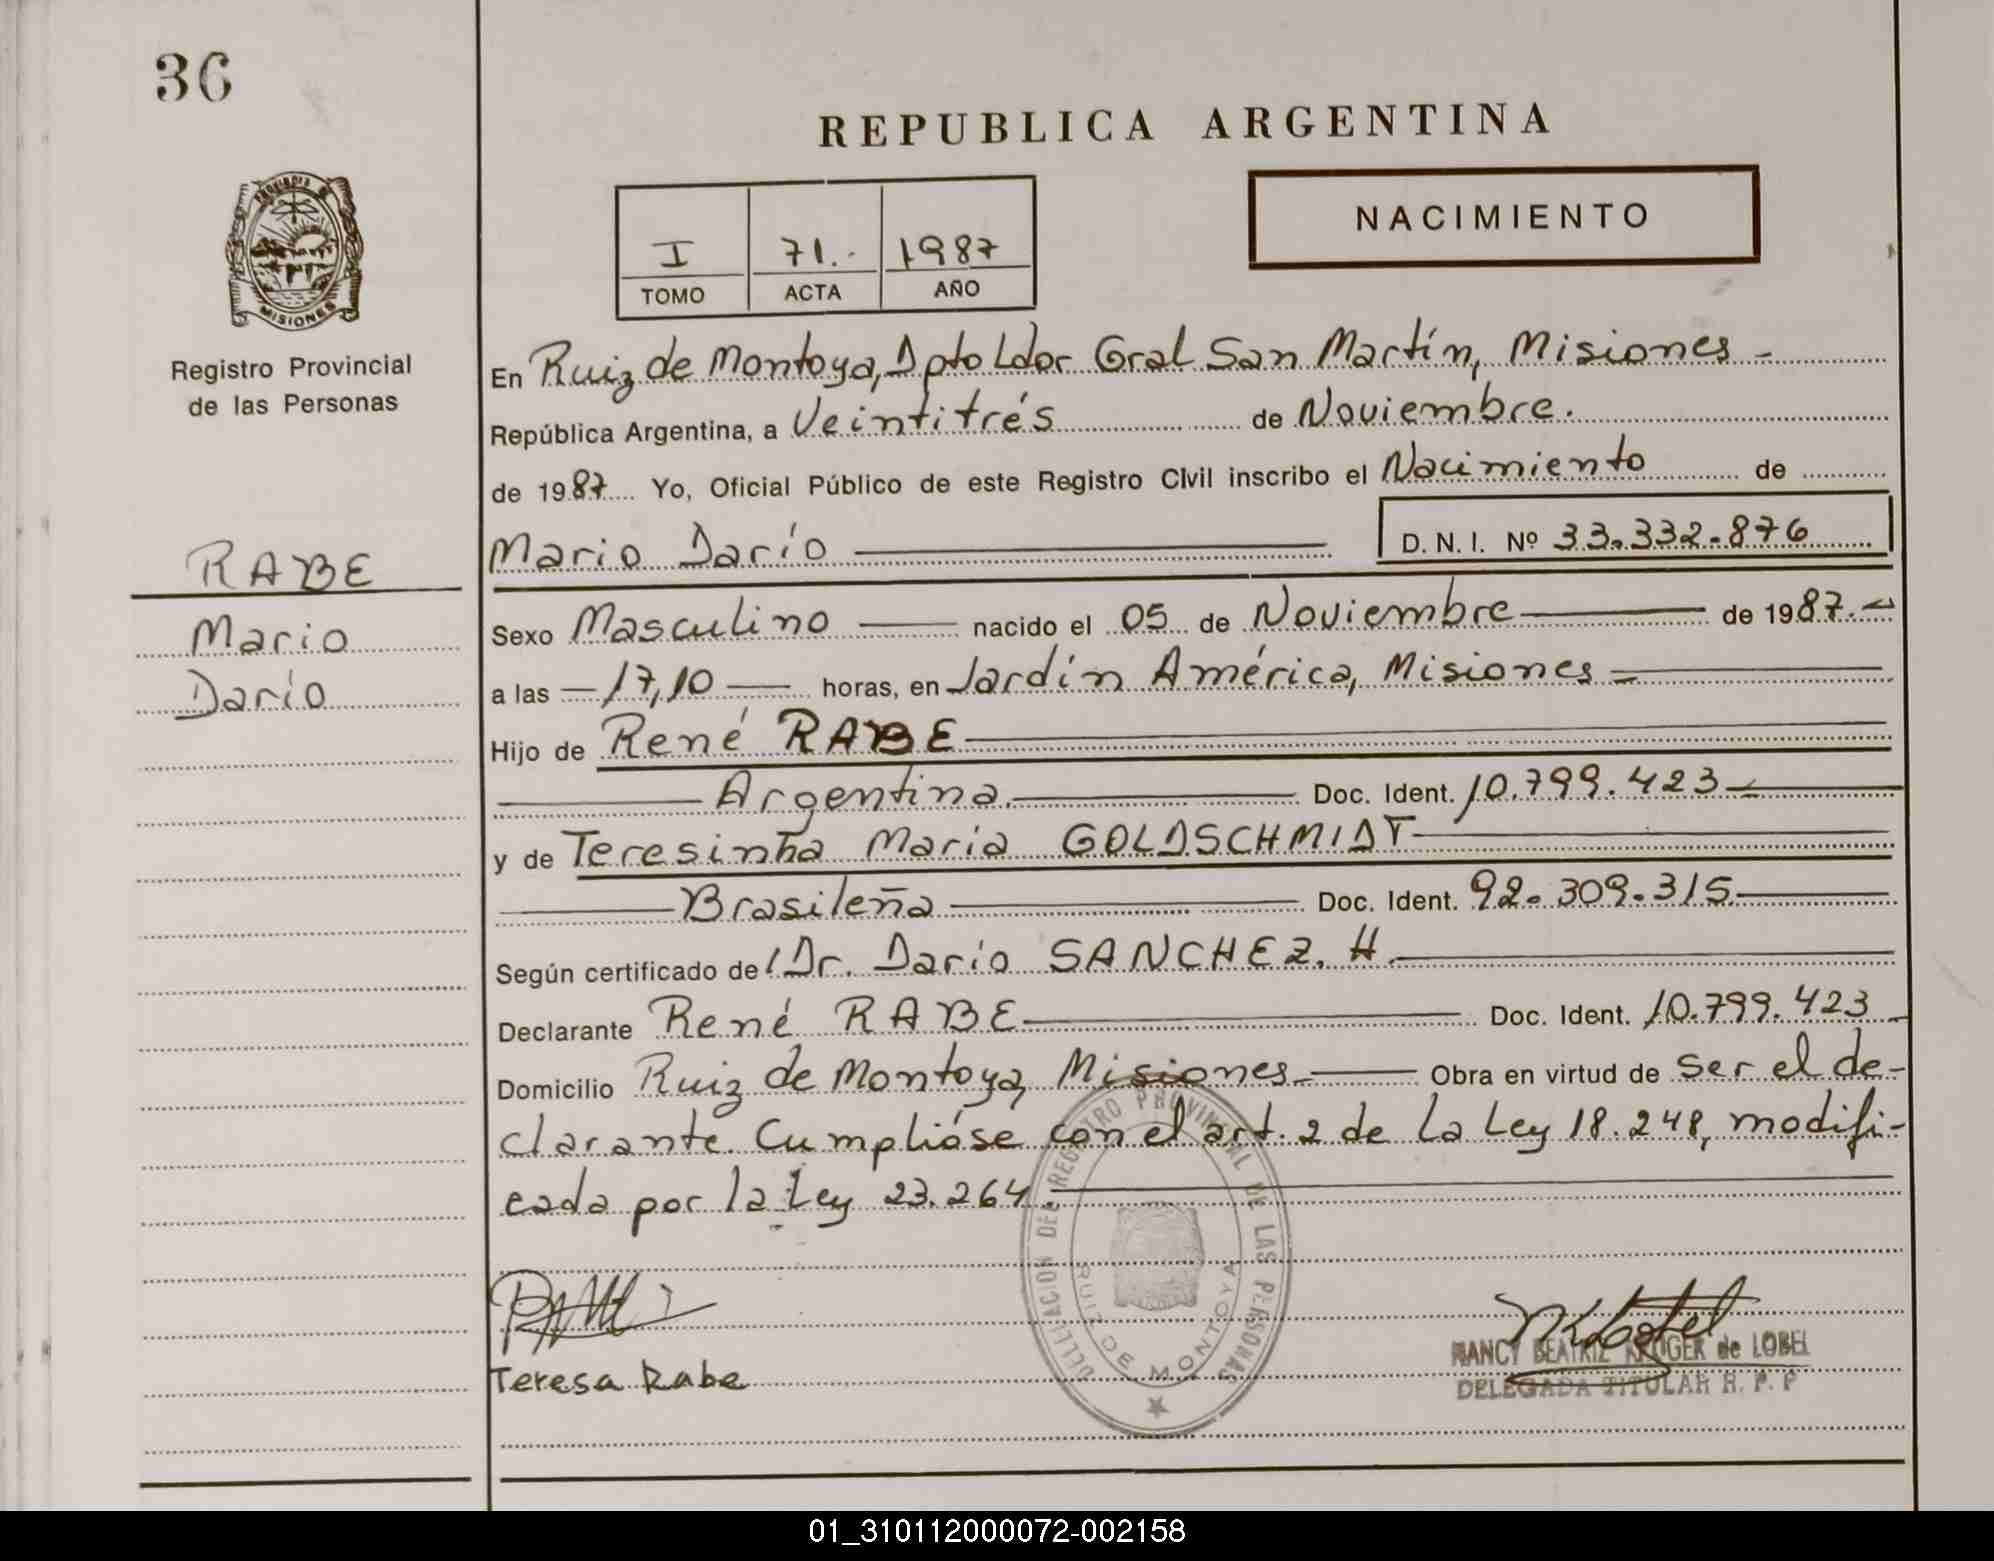 36
REPUBLICA ARGENTINA
NACIMIENTO
I 71.- 1987
TOMO ACTA AÑO
PROVINCIA DE
MISIONES
Registro Provincial
de las Personas
RABE
Mario
Darío
En Ruiz de Montoya, Dpto Ldor Gral San Martín, Misiones -
República Argentina, a Veintitrés de Noviembre.
de 1987 Yo, Oficial Público de este Registro Civil inscribo el Nacimiento de
Mario Darío D. N. I. Nº 33.332.876
Sexo Masculino nacido el 05 de Noviembre de 1987.-
a las - 17,10 - horas, en Jardín América, Misiones -
Hijo de René RABE
Argentina. Doc. Ident. 10.799.423
y de Teresinha Maria GOLDSCHMIDT
Brasileña Doc. Ident. 92.309.315
Según certificado de Dr. Darío SANCHEZ. H.
Declarante René RABE Doc. Ident. 10.799.423
Domicilio Ruiz de Montoya, Misiones. Obra en virtud de ser el de-
clarante. Cumplióse con el art. 2 de la Ley 18.248, modifi-
cada por la Ley 23.264.
DELEGACION DEL REGISTRO PROVINCIAL DE LAS PERSONAS
RUIZ DE MONTOYA
Teresa Rabe
NANCY BEATRIZ KRUGER de LOBEL
DELEGADA TITULAR R. P. P
01_310112000072-002158